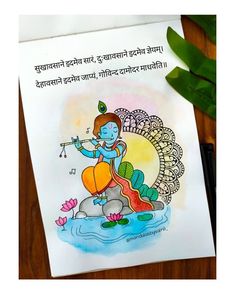 सुखावसाने इदमेव सारं, दुःखावसाने इदमेव ज्ञेयम्।
देहावसाने इदमेव जाप्यं, गोविन्द दामोदर माधवेति॥